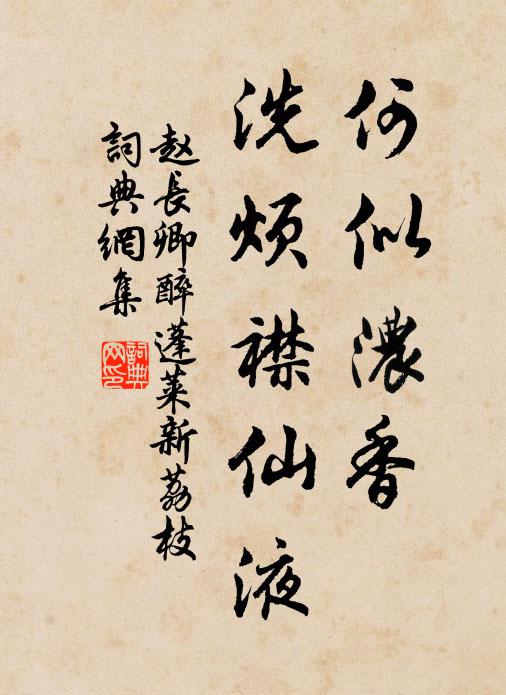 何似濃香
洗煩襟仙液
赵長卿醉蓬莱新荔枝
詞典網集
詞典
网印